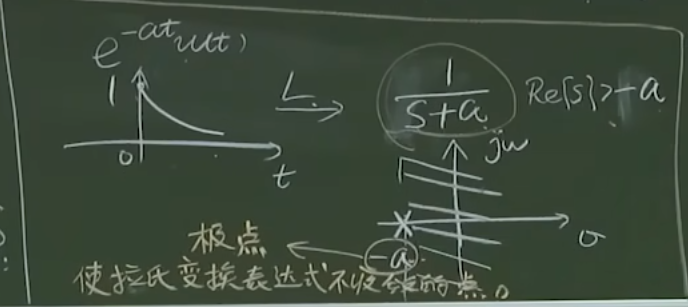 e^{-at}u(t)
1
0
t
L
1/(s+a) Re{s}>-a
jω
σ
-a
极点
使拉氏变换表达式不收敛的点。